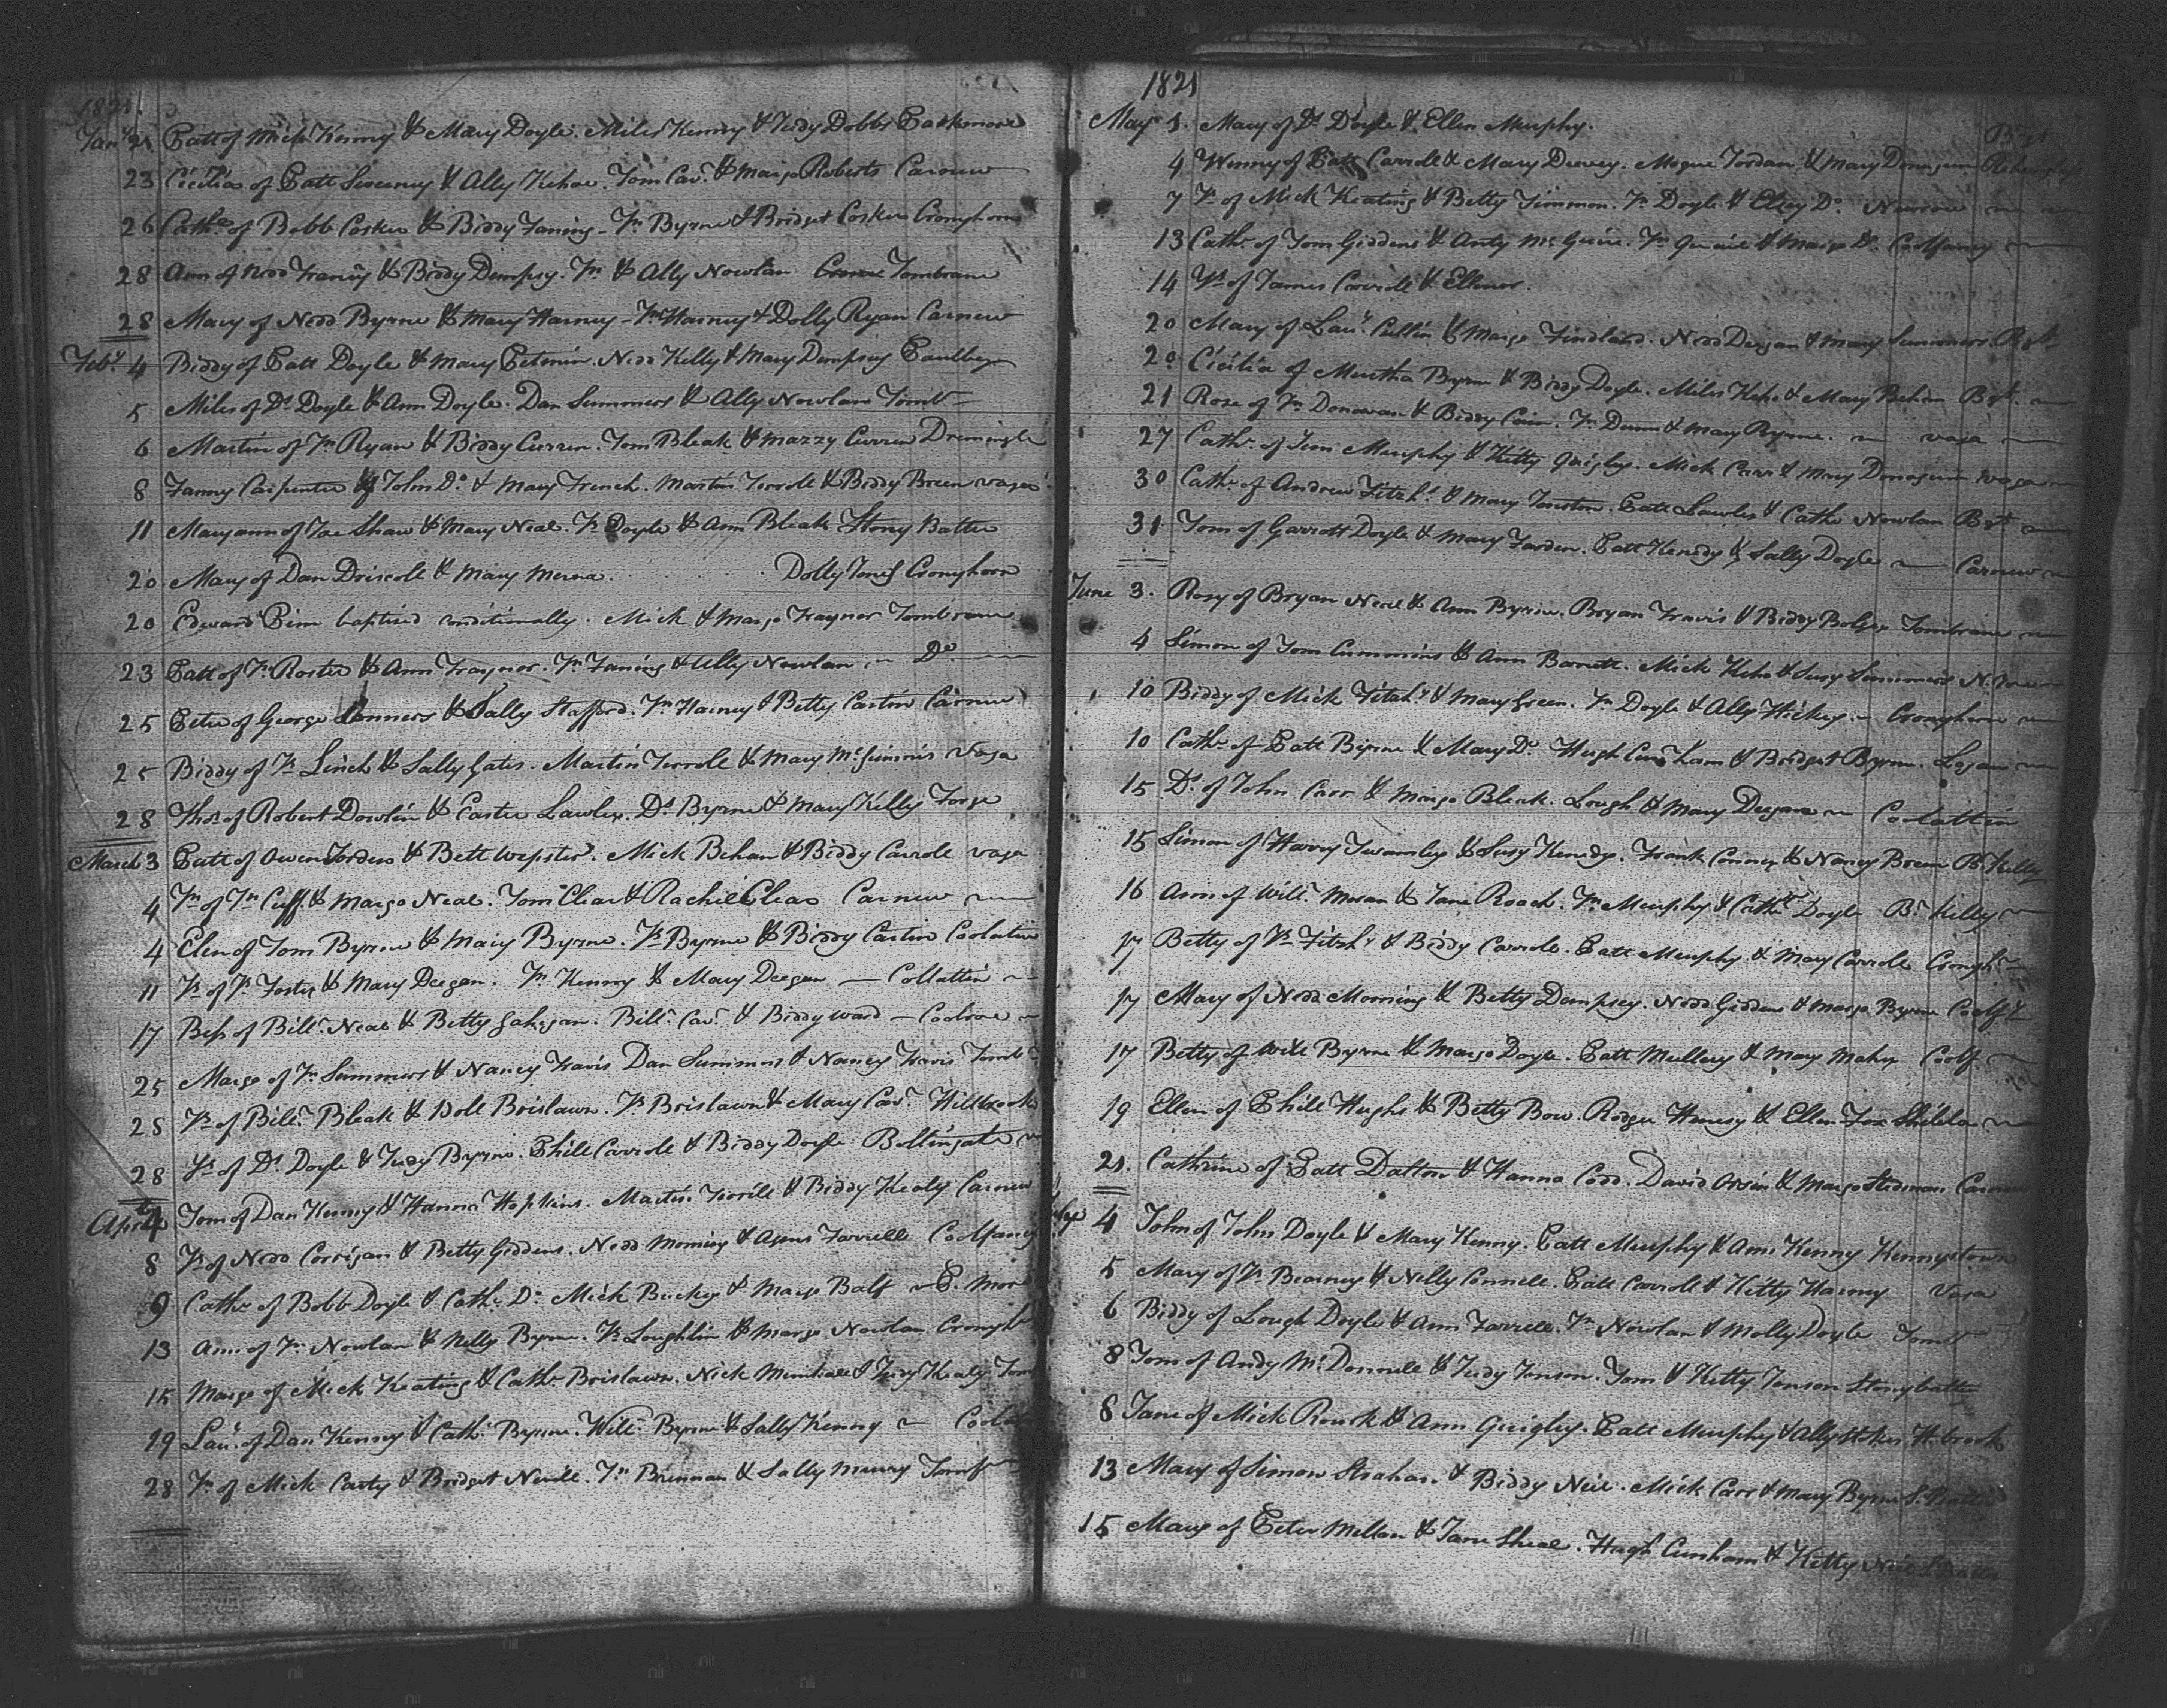 1821.
Jany 21 Patt of Mick Kenny & Mary Doyle. Miles Kenny & Judy Dobbs
23 Cicilia of Patt Sweeney & Ally Kehoe. Tom Cavh. & Marge Roberts Carnew
26 Cathe. of Bobb Coskin & Biddy Faning - Jn Byrne & Bridget Coskin Cronyhorn
28 Ann of Nedd Franey & Biddy Dempsy. Jn & Ally Nowlan Tombrane
28 Mary of Nedd Byrne & Mary Harney - Jn Harney & Dolly Ryan Carnew
Feby. 4 Biddy of Patt Doyle & Mary. Nedd Kelly & Mary Dempsey
5 Miles of Ds Doyle & Ann Doyle. Dan Summers & Ally Nowlan Tomb
6 Martin of Jn Ryan & Biddy Curren. Tom Bleak & Mazzy Curren
8 Fanny Carpenter of John Do. & Mary French. Martin Torrole & Biddy Breen vaga
11 Maryann of Joe Shaw & Mary Neal. Js Doyle & Ann Bleak Stony Batter
20 Mary of Dan Driscole & Mary. Dolly Jones Cronyhorn
20 Edward Pim baptised conditionally. Mick & Marge Traynor Tombrane
23 Patt of Js Roster & Ann Traynor. Jn Faning & Ally Nowlan Do.
25 Peter of George Conners & Sally Stafford. Jn Harney & Betty Castin Carnew
25 Biddy of Js Linch & Sally Gates. Martin Torrole & Mary McGinnis Vaga
28 Thos. of Robert Dowlin & Easter Lawler. Ds Byrne & Mary Kelly Forge
March 3 Patt of Owen Jorden & Bett Wepster. Mick Behan & Biddy Carrole vaga
4 Jn of Jn Cuff & Marge Neal. Tom Clear & Rachiel Clear Carnew
4 Elen of Tom Byrne & Mary Byrne. Js Byrne & Biddy Castin
11 Js of Js Foster & Mary Deegan. Jn Kenny & Mary Deegan — Collattin
17 Bess of Bill. Neal & Betty Gahegan. Bill. Cavh. & Biddy Ward —
25 Marge of Jn Summers & Nancy Travis Dan Summers & Nancy Travis Tomb
28 Js of Bill. Bleak & Doll Brislawn. Js Brislawn & Mary Cavh. Hillbrook
28 Js of Ds Doyle & Judy Byrne. Phill Carrole & Biddy Doyle Bollingate
April 4 Tom of Dan Kenny & Hanna Hopkins. Martin Torrole & Biddy Kealy Carnew
8 Js of Nedd Corrigan & Betty Giddens. Nedd Morning & Farrelle Coolfancy
9 Cathe. of Bobb Doyle & Cathe. Do. Mick & Marge Balf
13 Ann of Jn Nowlan & Nelly Byrne. Js Loughlin & Marge Nowlan Cronyh
15 Marge of Mick Keating & Cathe. Brislawn. Nick & Judy Kealy Tom
19 Lau. of Dan Kenny & Cath. Byrne. Will. Byrne & Sally Kenny
28 Jn of Mick Carty & Bridget Neill. Jn Brennan & Sally
1821
May 1. Mary of Ds Doyle & Ellen Murphy.
4 Winny of Patt Carroll & Mary. Mogue Jordan & Mary
7 Js of Mick Keating & Betty Timmon. Jn Doyle & Elsey Do.
13 Cathe. of Tom Giddens & Anty McGuire. Jn & Marge Do. Coolfancy
14 Js of James Carrole & Ellenor.
20 Mary of Lau. Cullin & Marge. Nedd Deegan & Mary Summers
20 Cicilia of Murtha Byrne & Biddy Doyle. Miles Keho & Mary Behan
21 Rose of Jn Donovan & Biddy Cain. Jn Dunn & Mary Byrne. vaga
27 Cathe. of Jem Murphy & Kitty Quigley. Mick Carr & Mary vaga
30 Cathe. of Andrew Fitzh. & Mary. Patt Lawler & Cathe Nowlan
31 Tom of Garrott Doyle & Mary Jorden. Patt Kenedy & Sally Doyle Carnew
June 3. Rosy of Bryan Neal & Ann Byrne. Bryan Travis & Biddy Bolger Tombrane
4 Simon of Tom Cummins & Ann Barrett. Mick Keho & Susy Summers
10 Biddy of Mick Fitzh. & Mary Green. Jn Doyle & Ally Hickey Cronyhorn
10 Cathe. of Patt Byrne & Mary Do. Hugh Cunham & Bridget Byrne.
15 Ds. of John Carr & Marge Bleak. Lough & Mary Deegan Coolattin
15 Simon of Harry Twamley & Susy Kenedy. Frank & Nancy Breen
16 Ann of Will. Moran & Jane Roach. Jn Murphy & Cathe Doyle
17 Betty of Js Fitzh. & Biddy Carrole. Patt Murphy & Mary Carrole
17 Mary of Nedd Morning & Betty Dempsey. Nedd Giddens & Marge Byrne
17 Betty of Will Byrne & Marge Doyle. Patt Mullery & Mary Coolf.
19 Ellen of Phill Hughs & Betty Bow. Rodger & Ellen Fox
21. Cathrine of Patt Dalton & Hanna Codd. David & Marge Stedman
July 4 John of John Doyle & Mary Kenny. Patt Murphy & Ann Kenny Kennystown
5 Mary of Js & Nelly Connell. Patt Carroll & Kitty Harney Vaga
6 Biddy of Lough Doyle & Ann Farrell. Jn Nowlan & Molly Doyle
8 Tom of Andy McDonnell & Judy Jonson. Tom & Kitty Jonson Stonybatter
8 Jane of Mick Rourk & Ann Quigley. Patt Murphy & Ally Stokes H.brook
13 Mary of Simon Strahan & Biddy Neil. Mick Carr & Mary Byrne
15 Mary of Peter Mellan & Jane. Hugh Cunham & Kitty Neil